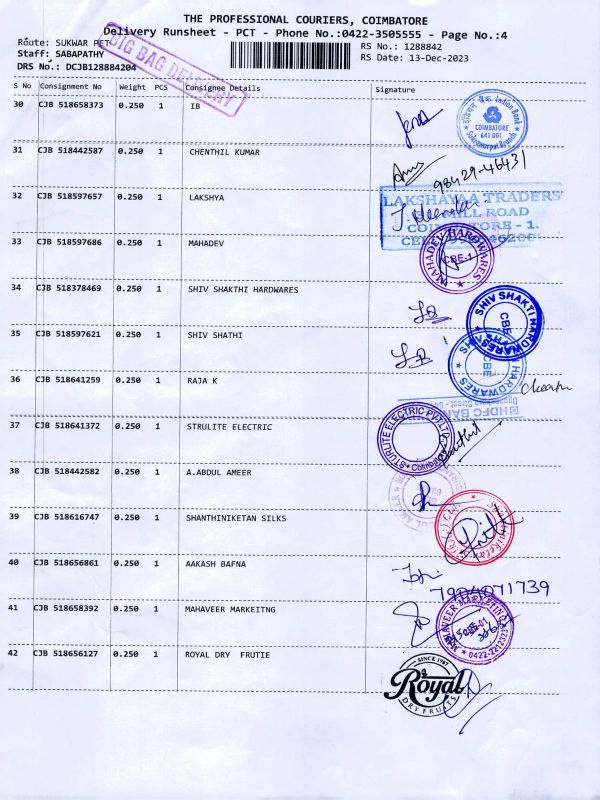 THE PROFESSIONAL COURIERS, COIMBATORE
Delivery Runsheet - PCT - Phone No.:0422-3505555 - Page No.:4
Route: SUKWAR PET
RS No.: 1288842
Staff: SABAPATHY
RS Date: 13-Dec-2023
DRS No.: DCJB128884204
BIG BAG DELIVERY
S No Consignment No Weight PCS Consignee Details Signature
30 CJB 518658373 0.250 1 IB
इंडियन बैंक Indian Bank
COIMBATORE
641 001
Sukrawarpet Branch
31 CJB 518442587 0.250 1 CHENTHIL KUMAR
98429-46431
32 CJB 518597657 0.250 1 LAKSHYA
LAKSHAYAA TRADERS
ROAD
33 CJB 518597686 0.250 1 MAHADEV
MAHADEV HARDWARES
CBE-1
34 CJB 518378469 0.250 1 SHIV SHAKTHI HARDWARES
SHIV SHAKTI HARDWARES
CBE
35 CJB 518597621 0.250 1 SHIV SHATHI
HARDWARES
CBE
36 CJB 518641259 0.250 1 RAJA K
HDFC BANK
37 CJB 518641372 0.250 1 STRULITE ELECTRIC
STURLITE ELECTRIC PVT.LTD
38 CJB 518442582 0.250 1 A.ABDUL AMEER
39 CJB 518616747 0.250 1 SHANTHINIKETAN SILKS
40 CJB 518656861 0.250 1 AAKASH BAFNA
7904071739
41 CJB 518658392 0.250 1 MAHAVEER MARKEITNG
42 CJB 518656127 0.250 1 ROYAL DRY FRUTIE
SINCE 1987
Royal
DRY FRUITS